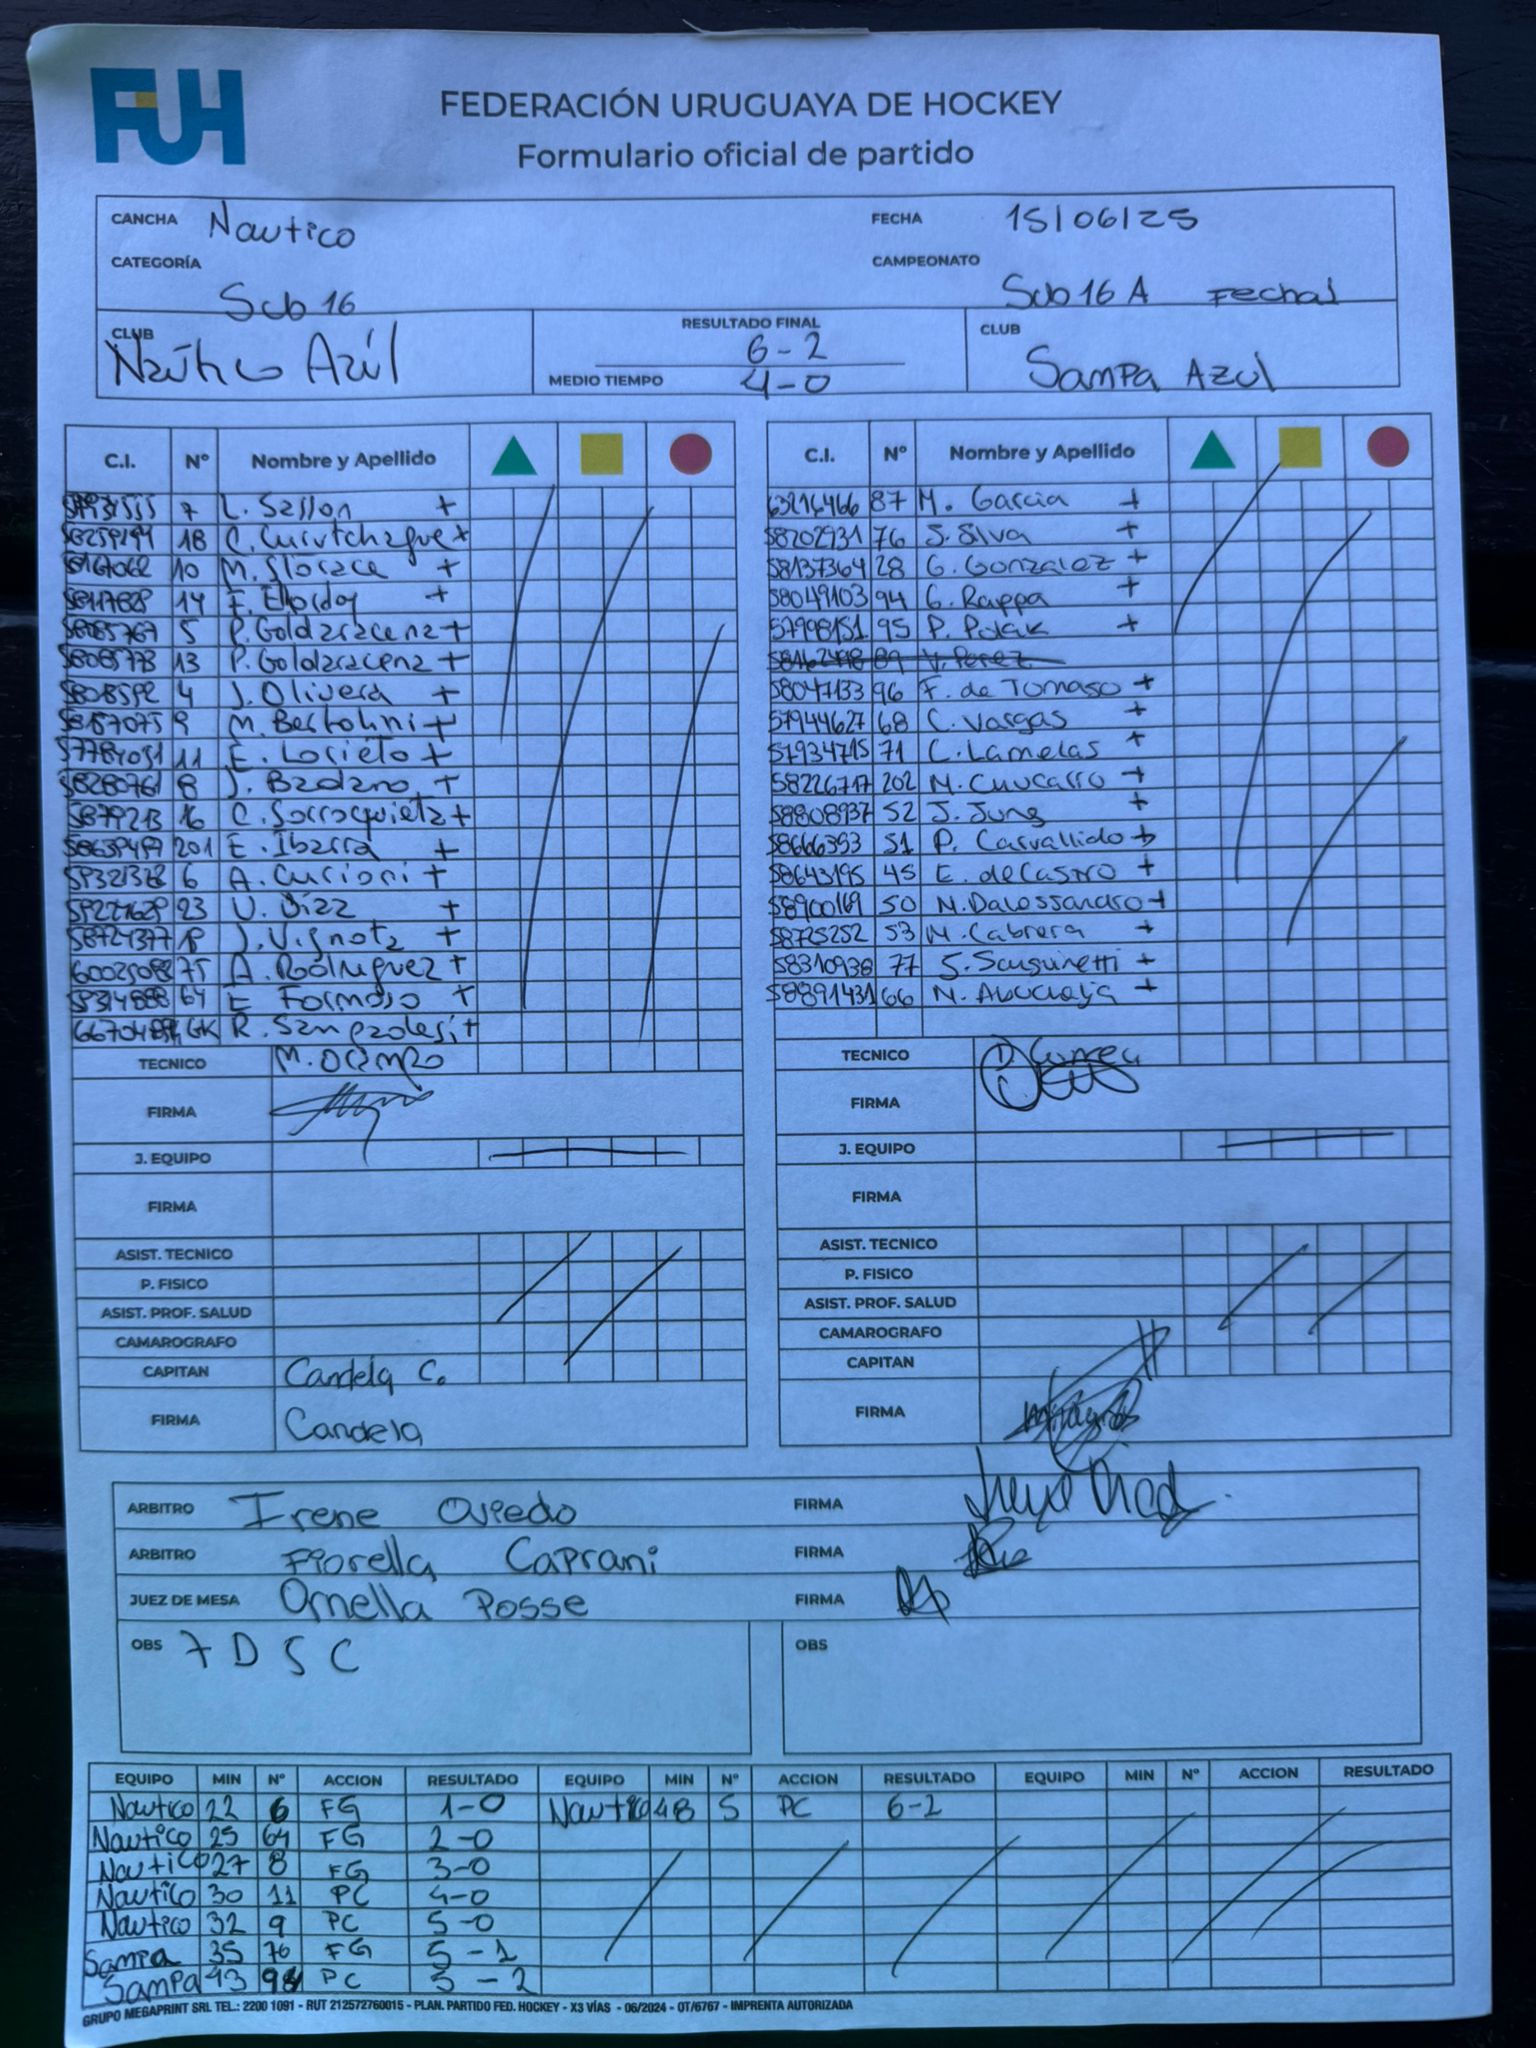 FUH
FEDERACIÓN URUGUAYA DE HOCKEY
Formulario oficial de partido
CANCHA Nautico FECHA 15/06/25
CATEGORÍA Sub 16 CAMPEONATO Sub 16 A Fecha1
CLUB Naútico Azúl RESULTADO FINAL 6-2 CLUB Sampa Azul
MEDIO TIEMPO 4-0
C.I. Nº Nombre y Apellido
7 L. Sasson +
18 C. Curutchague +
10 M. Slorace +
14 F. +
5 P. Goldaracena +
13 P. Goldaracena +
4 J. Olivera +
9 M. Bertolini +
11 E. Losieto +
58280761 8 J. Badano +
16 C. Sorroquieta +
201 E. Ibarra +
6 A. Curioni +
23 V. Díaz +
58724377 J. Vignota +
75 A. Rodriguez +
64 E Formoso +
GK R. +
TECNICO M. Ocampo
FIRMA
J. EQUIPO
FIRMA
ASIST. TECNICO
P. FISICO
ASIST. PROF. SALUD
CAMAROGRAFO
CAPITAN Candela C.
FIRMA Candela
C.I. Nº Nombre y Apellido
63216466 87 M. Garcia +
58202931 76 S. Silva +
58137364 28 G. Gonzalez +
58049103 94 G. Rappa +
57998151 95 P. Polak +
58162498 89 V. Perez
58047133 96 F. de Tomaso +
57944627 68 C. Vargas +
57934715 71 C. Lamelas +
58226717 202 M. Cuucarro +
58808937 52 J. Jung +
58666353 51 P. Carvallido +
58643195 45 E. de Castro +
58900169 50 M. Dalessandro +
58725252 53 M. Cabrera +
58310938 77 S. Sanguinetti +
58891431 66 M. Abuchaja +
TECNICO
FIRMA
J. EQUIPO
FIRMA
ASIST. TECNICO
P. FISICO
ASIST. PROF. SALUD
CAMAROGRAFO
CAPITAN
FIRMA Milagros
ARBITRO Irene Oviedo FIRMA
ARBITRO Fiorella Caprani FIRMA
JUEZ DE MESA Ornella Posse FIRMA
OBS 7 D S C OBS
EQUIPO MIN Nº ACCION RESULTADO EQUIPO MIN Nº ACCION RESULTADO EQUIPO MIN Nº ACCION RESULTADO
Nautico 22 6 FG 1-0 Nautico 48 5 PC 6-2
Nautico 25 64 FG 2-0
Nautico 27 8 FG 3-0
Nautico 30 11 PC 4-0
Nautico 32 9 PC 5-0
Sampa 35 76 FG 5-1
Sampa 43 PC 5-2
GRUPO MEGAPRINT SRL TEL.: 2200 1091 - RUT 212572760015 - PLAN. PARTIDO FED. HOCKEY - X3 VÍAS - 06/2024 - OT/6767 - IMPRENTA AUTORIZADA